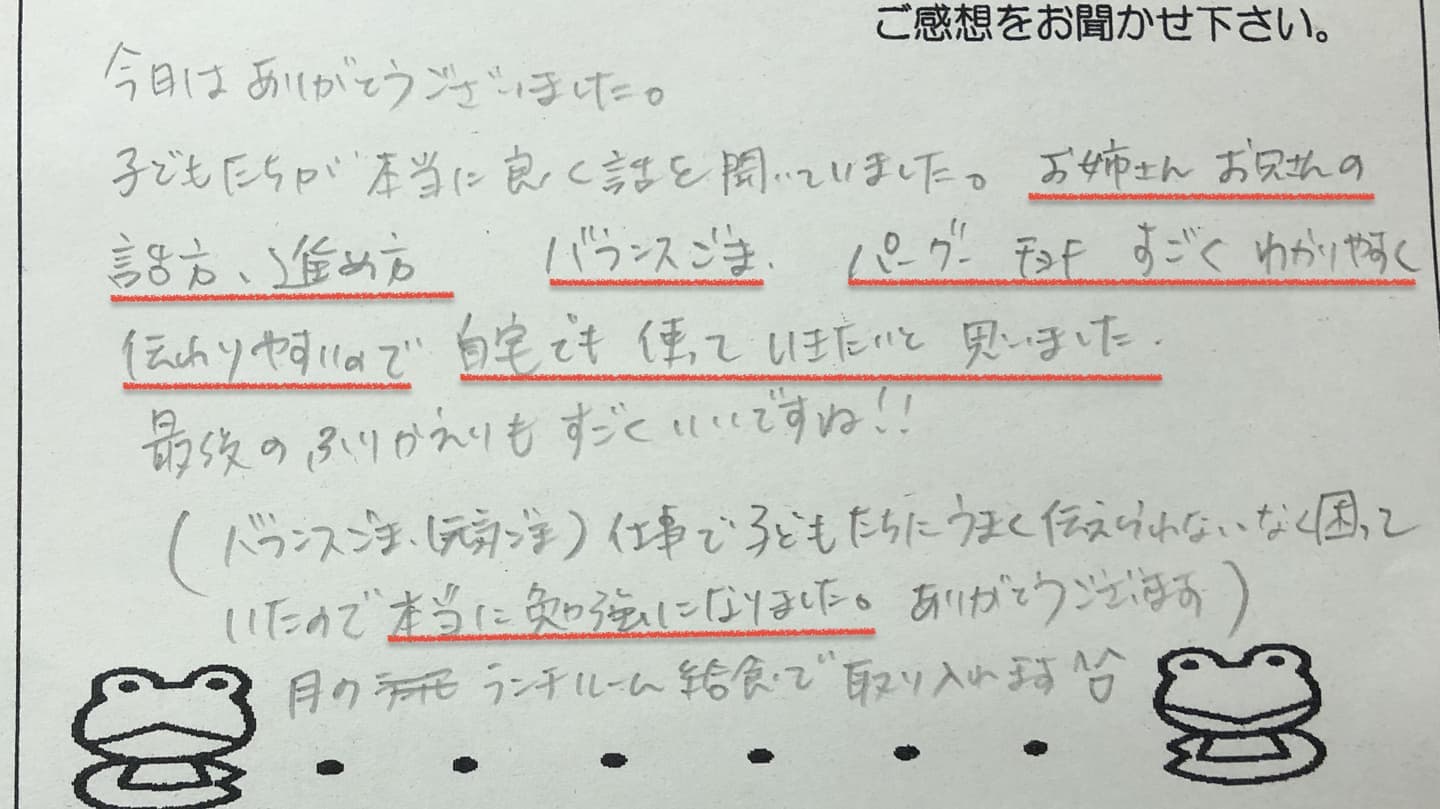 ご感想をお聞かせ下さい。
今日はありがとうございました。
子どもたちが本当に良く話を聞いていました。お姉さんお兄さんの
話方、進め方 バランスごま、 すごくわかりやすく
伝わりやすいので 自宅でも使っていきたいと思いました。
最後のふりかえりもすごくいいですね!!
(バランスごま、(元気ごま)仕事で子どもたちにうまく伝えられないなく困って
いたので本当に勉強になりました。ありがとうございます)
月の ランチルーム給食で取り入れます^^